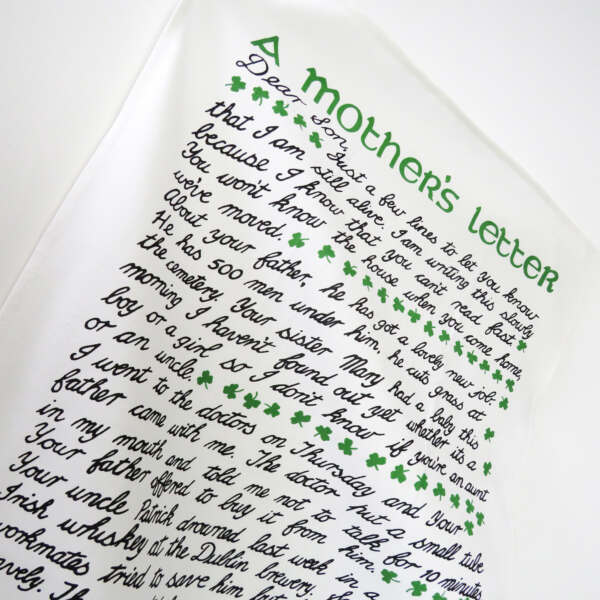 A MOTHER'S LETTER
Dear Son, Just a few lines to let you know
that I am still alive. I am writing this slowly
because I know that you can't read fast.
You won't know the house when you come home,
we've moved.
About your father, he has got a lovely new job.
He has 500 men under him, he cuts grass at
the cemetery. Your sister Mary had a baby this
morning I haven't found out yet whether it's a
boy or a girl so I don't know if you're an aunt
or an uncle.
I went to the doctors on Thursday and Your
father came with me. The doctor put a small tube
in my mouth and told me not to talk for 10 minutes
Your father offered to buy it from him.
Your uncle Patrick drowned last week in a
Irish whiskey at the Dublin brewery. S
workmates tried to save him but
avely. Th